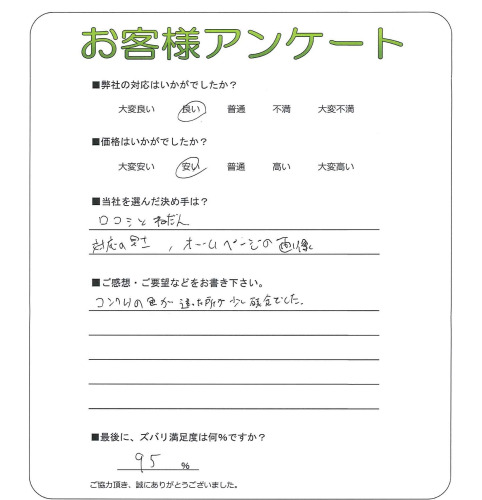 お客様アンケート
■弊社の対応はいかがでしたか？
大変良い 良い 普通 不満 大変不満
■価格はいかがでしたか？
大変安い 安い 普通 高い 大変高い
■当社を選んだ決め手は？
口コミとねだん
対応の早さ , ホームページの画像
■ご感想・ご要望などをお書き下さい。
コンクリの色が違った所が少し残念でした.
■最後に、ズバリ満足度は何%ですか？
95 %
ご協力頂き、誠にありがとうございました。